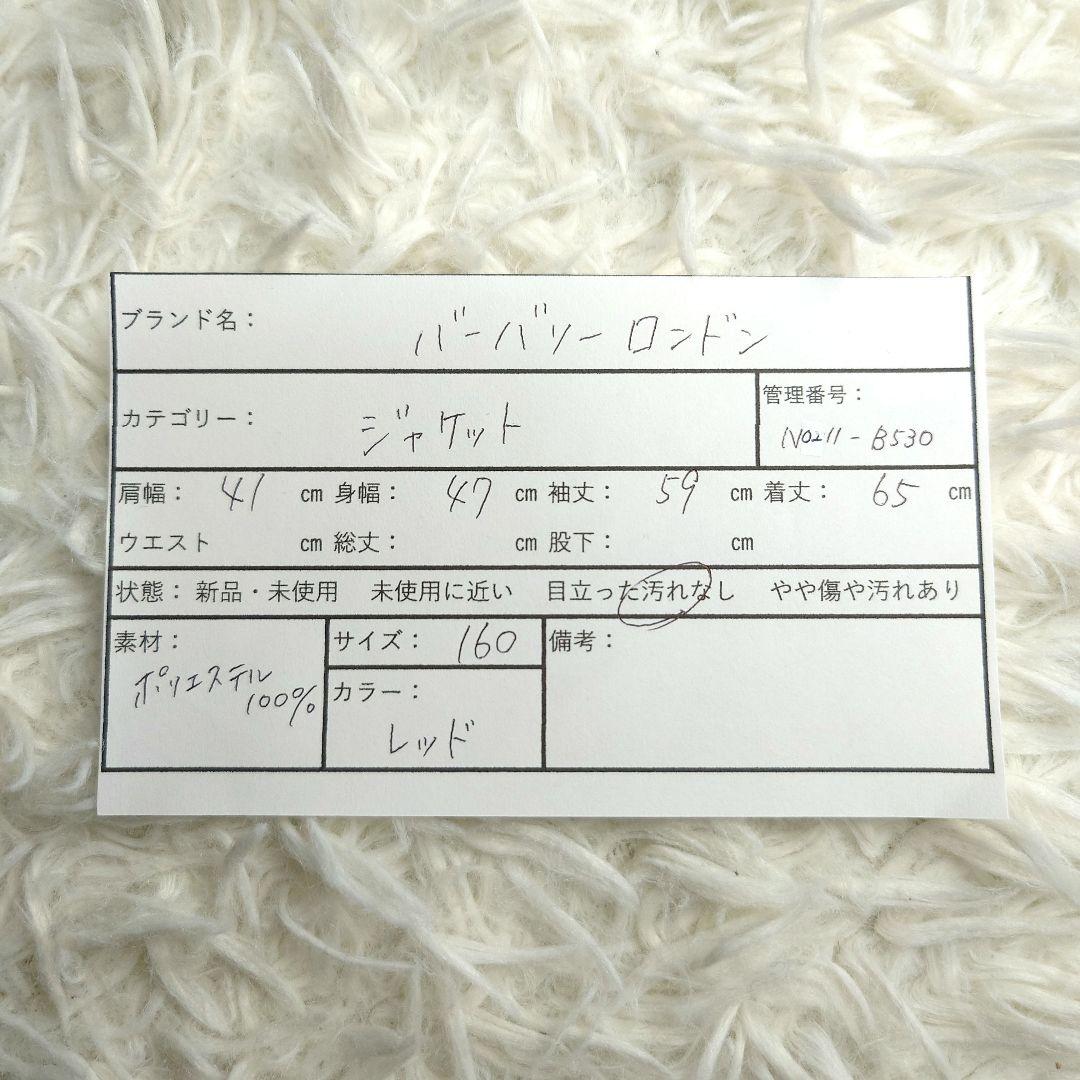 ブランド名： バーバリー ロンドン
カテゴリー： ジャケット
管理番号：
No211-B530
肩幅： 41 cm 身幅： 47 cm 袖丈： 59 cm 着丈： 65 cm
ウエスト cm 総丈： cm 股下： cm
状態： 新品・未使用 未使用に近い 目立った汚れなし やや傷や汚れあり
素材：
ポリエステル
100%
サイズ： 160
カラー：
レッド
備考：